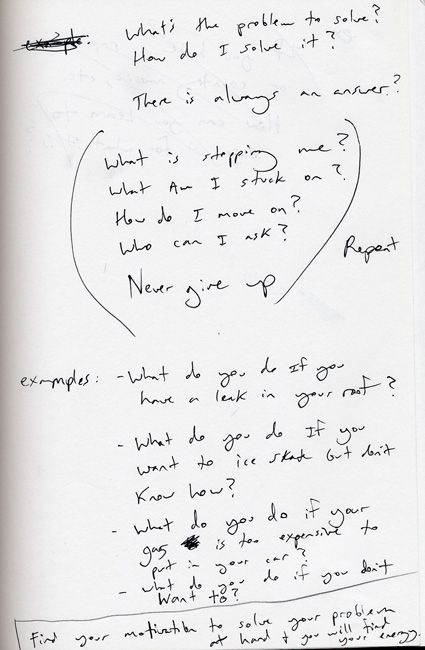 example.
What's the problem to solve?
How do I solve it?
There is always an answer?
What is stopping me?
What Am I stuck on?
How do I move on?
Who can I ask?
Never give up
Repeat
examples: - What do you do If you
have a leak in your roof?
- What do you do If you
want to ice skate but don't
know how?
- What do you do if your
gas is too expensive to
put in your car?
- what do you do if you don't
want to?
Find your motivation to solve your problem
at hand + you will find
your energy.